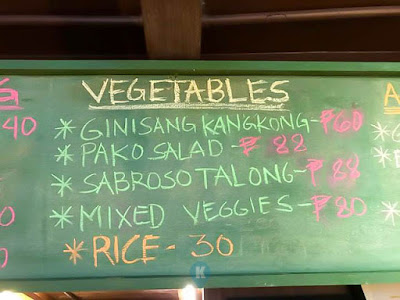 VEGETABLES
40
* GINISANG KANGKONG - ₱60
* PAKO SALAD - ₱ 82
* SABROSO TALONG - ₱88
* MIXED VEGGIES - ₱80
* RICE - 30
K